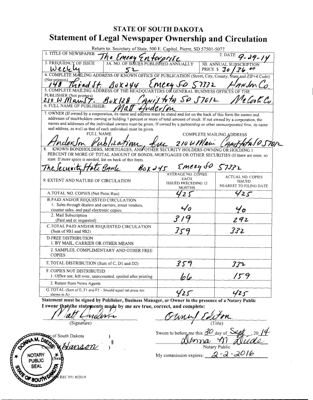 STATE OF SOUTH DAKOTA
Statement of Legal Newspaper Ownership and Circulation
Return to: Secretary of State, 500 E. Capitol, Pierre, SD 57501-5077
1. TITLE OF NEWSPAPER The Emery Enterprise 2. DATE 9-29-14
3. FREQUENCY OF ISSUE Weekly 3A. NO. OF ISSUES PUBLISHED ANNUALLY 52 3B. ANNUAL SUBSCRIPTION PRICE $
4. COMPLETE MAILING ADDRESS OF KNOWN OFFICE OF PUBLICATION (Street, City, County, State and ZIP+4 Code)
Box 244 Emery SD 57332 Hanson Co.
5. COMPLETE MAILING ADDRESS OF THE HEADQUARTERS OR GENERAL BUSINESS OFFICES OF THE
PUBLISHER
210 N Main St Box 128 Canistota SD 57012 McCook Co.
6. FULL NAME OF PUBLISHER Matt Anderson
7. OWNER (If owned by a corporation, its name and address must be stated and also the names and
addresses of stockholders owning or holding 1 percent or more of total amount of stock. If not owned by a corporation, the
names and addresses of the individual owners must be given. If owned by a partnership or other unincorporated firm, its name
and address, as well as that of each individual must be given.
FULL NAME COMPLETE MAILING ADDRESS
Anderson Publications Inc 210 N Main Canistota SD 57012
8. KNOWN BONDHOLDERS, MORTGAGEES, AND OTHER SECURITY HOLDERS OWNING OR HOLDING 1
PERCENT OR MORE OF TOTAL AMOUNT OF BONDS, MORTGAGES OR OTHER SECURITIES (If there are none, so
state. If more space is needed, list on back of this form)
The Security State Bank Box 245 Emery SD 57332
9. EXTENT AND NATURE OF CIRCULATION
AVERAGE NO. COPIES EACH ISSUE DURING PRECEDING 12 MONTHS
ACTUAL NO. COPIES ISSUED NEAREST TO FILING DATE
A. TOTAL NO. COPIES (Net Press Run) 425 425
B. PAID AND/OR REQUESTED CIRCULATION
1. Sales through dealers and carriers, street vendors,
counter sales, and paid electronic copies 40 40
2. Mail Subscription
(Paid and or requested) 319 292
C. TOTAL PAID AND/OR REQUESTED CIRCULATION
(Sum of 9B1 and 9B2) 359 332
D. FREE DISTRIBUTION
1. BY MAIL, CARRIER OR OTHER MEANS
2. SAMPLES, COMPLIMENTARY AND OTHER FREE
COPIES
E. TOTAL DISTRIBUTION (Sum of C, D1 and D2) 359 332
F. COPIES NOT DISTRIBUTED
1. Office use, left over, unaccounted, spoiled after printing 66 159
2. Return from News Agents
G. TOTAL 425 425
Statement must be signed by Publisher, Business Manager, or Owner in the presence of a Notary Public
I swear that the statements made by me are true, correct, and complete:
Matt Anderson Owner/Editor
(Signature) (Title)
State of South Dakota )
Hanson )
Sworn to before me this 30 day of Sept, 2014
Notary Public
My commission expires: 2-2-2016
DONNA M.
NOTARY
PUBLIC
SEAL
SOUTH DAKOTA